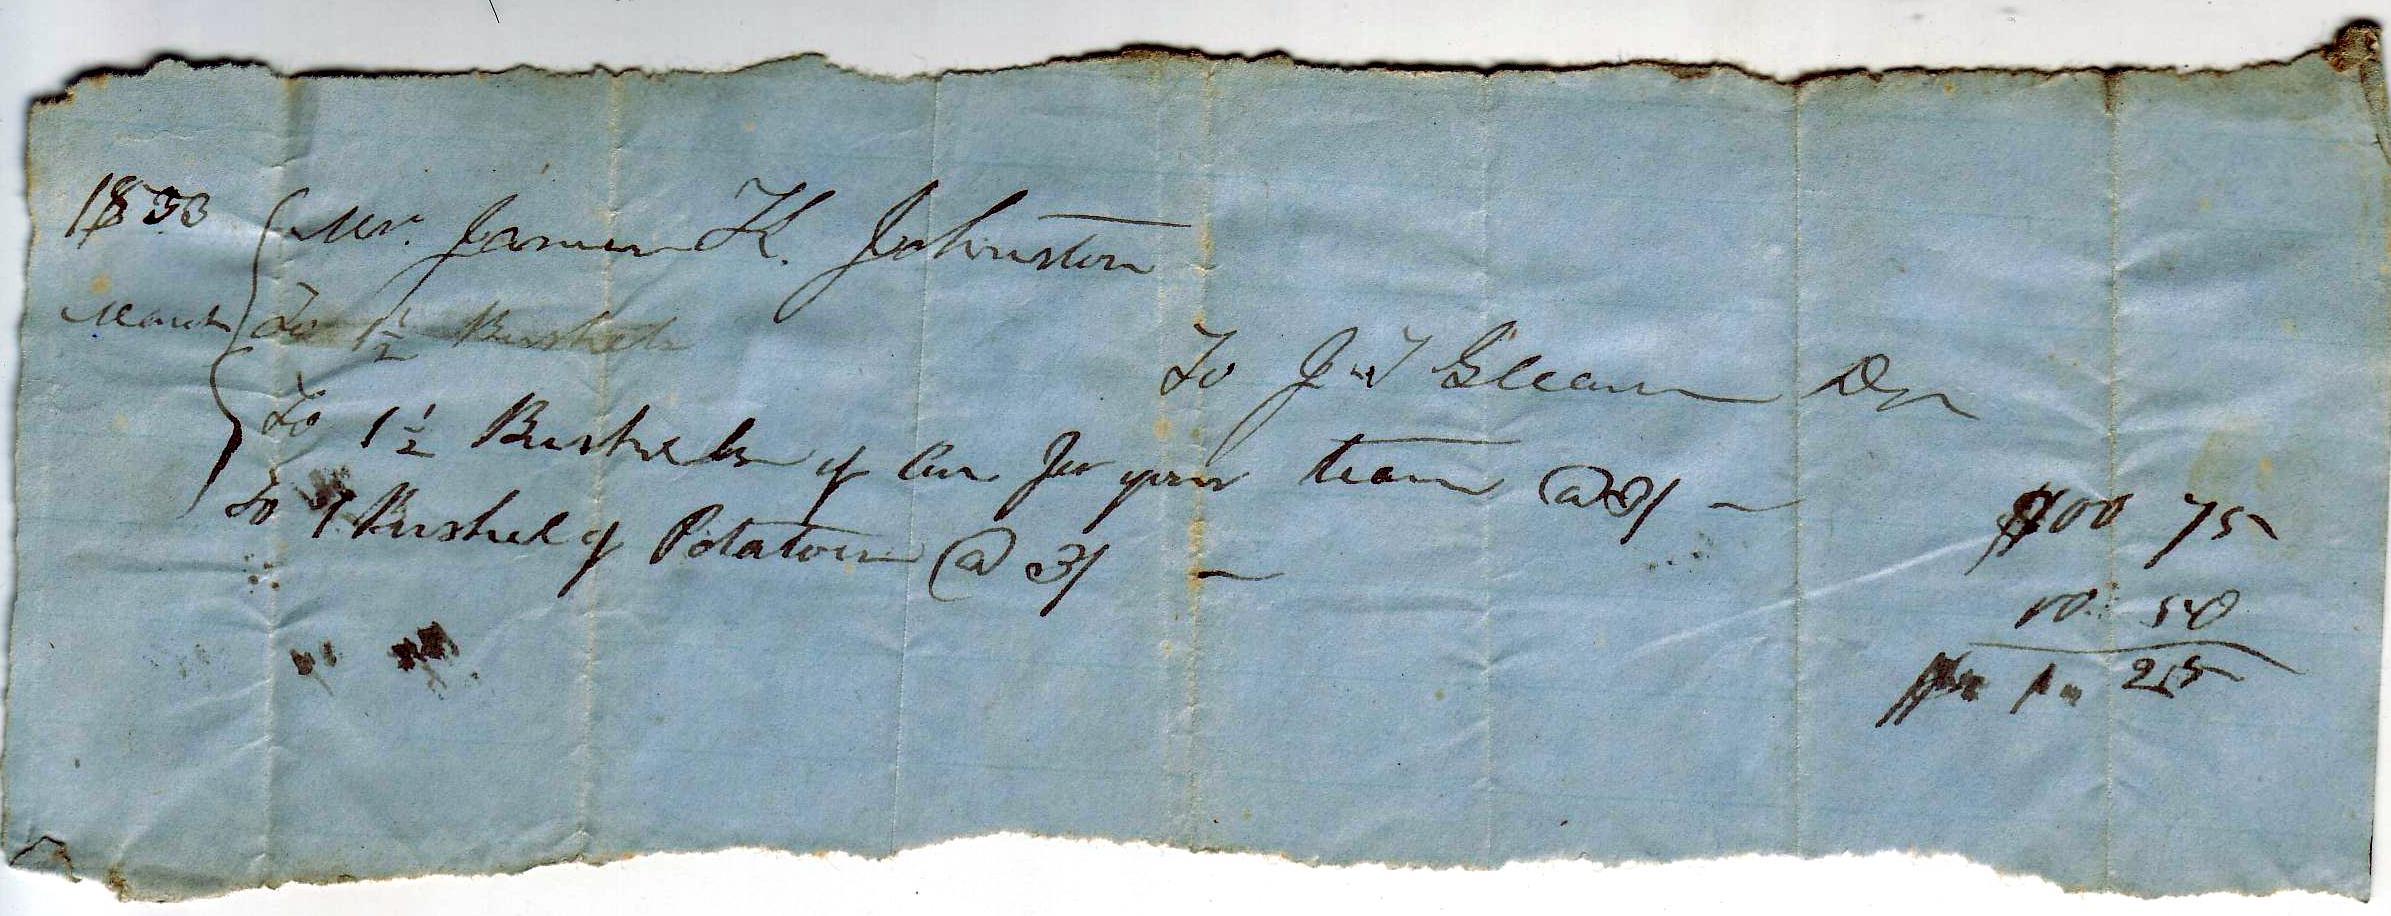 1853
Mr. James K. Johnston
March
To 1 1/2 Bushels
To J W Gleam Dr
To 1 1/2 Bushels of for your team @ 3/ — $00 75
To 1 Bushel of Potatoes @ 3/ — 00 50
1 25